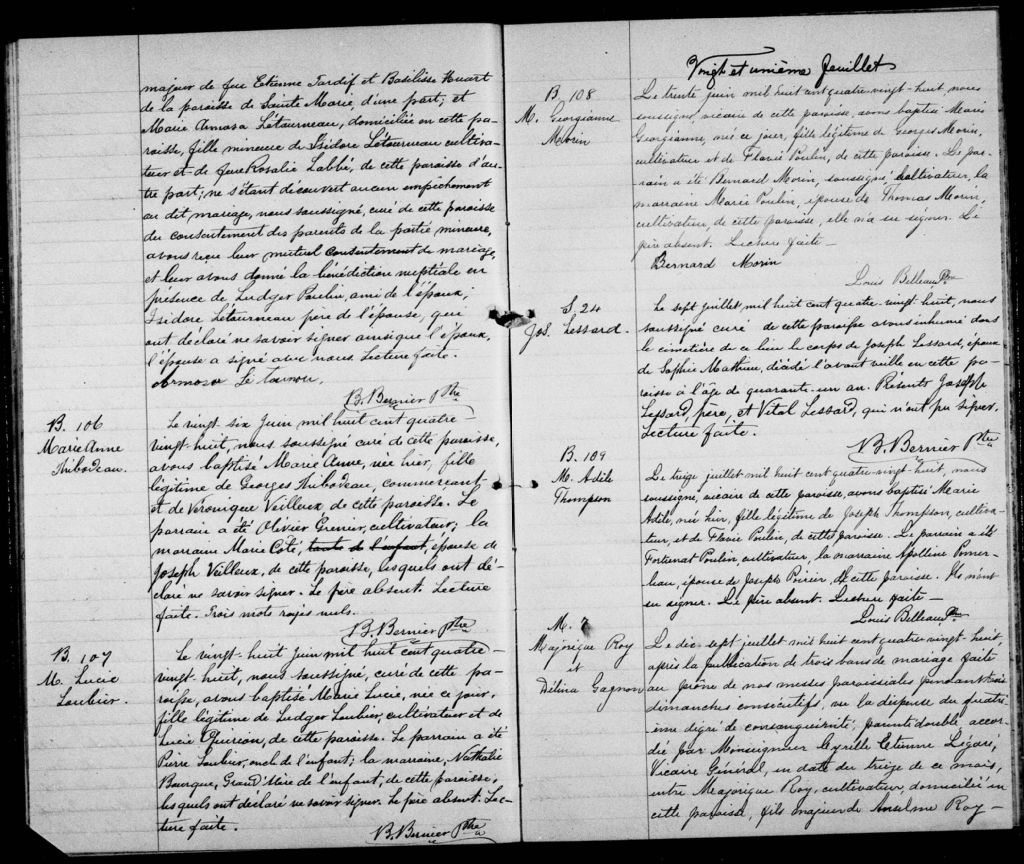 majeur de feu Etienne Tardif et Basilisse Huart
de la paroisse de Sainte Marie, d'une part; et
Marie Amasa Létourneau, domiciliée en cette pa-
roisse, fille mineure de Isidore Létourneau cultiva-
teur et de feue Rosalie Labbé, de cette paroisse d'au-
tre part; ne s'étant découvert aucun empêchement
au dit mariage, nous soussigné, curé de cette paroisse
du consentement des parents de la partie mineure,
avons reçu leur mutuel consentement de mariage,
et leur avons donné la bénédiction nuptiale en
présence de Ludger Poulin, ami de l'époux;
Isidore Létourneau père de l'épouse, qui
ont déclaré ne savoir signer ainsi que l'époux,
l'épouse a signé avec nous. Lecture faite.
Le Tournou,
B. Bernier Ptre
B. 106
Marie Anne
Thibodeau.
Le vingt-six Juin mil huit cent quatre
vingt-huit, nous soussigné curé de cette paroisse,
avons baptisé Marie Anne, née hier, fille
légitime de Georges Thibodeau, commerçant
et de Véronique Veilleux de cette paroisse. Le
parrain a été Olivier Grenier, cultivateur; la
marraine Marie Coté, tante de l'enfant, épouse de
Joseph Veilleux, de cette paroisse, lesquels ont dé-
claré ne savoir signer. Le père absent. Lecture
faite. Trois mots rayés nuls.
B. Bernier Ptre
B. 107
M. Lucie
Loubier.
Le vingt-huit Juin mil huit cent quatre-
vingt-huit, nous soussigné, curé de cette pa-
roisse, avons baptisé Marie Lucie, née ce jour,
fille légitime de Ludger Loubier, cultivateur et de
Lucie de cette paroisse. Le parrain a été
Pierre Loubier, oncle de l'enfant; la marraine, Nathalie
Bourque, Grand'Mère de l'enfant, de cette paroisse,
lesquels ont déclaré ne savoir signer. Le père absent. Lec-
ture faite.
B. Bernier Ptre
Vingt et unième feuillet
B. 108
M. Georgianne
Morin
Le trente juin mil huit cent quatre-vingt-huit, nous
soussigné, vicaire de cette paroisse, avons baptisé Marie
Georgianne, née ce jour, fille légitime de Georges Morin,
cultivateur et de Flavie Poulin, de cette paroisse. Le par-
rain a été Bernard Morin, soussigné cultivateur, la
marraine Marie Poulin, épouse de Thomas Morin,
cultivateur, de cette paroisse, elle n'a su signer. Le
père absent. Lecture faite —
Bernard Morin
Louis Belleau Ptre
S. 24
Jos. Lessard.
Le sept juillet, mil huit cent quatre-vingt-huit, nous
soussigné curé de cette paroisse avons inhumé dans
le cimetière de ce lieu le corps de Joseph Lessard, époux
de Sophie Mathieu, décédé l'avant veille en cette pa-
roisse à l'âge de quarante-un an. Présents Joseph
Lessard, père, et Vital Lessard, qui n'ont pu signer.
Lecture faite.
B. Bernier Ptre
B. 109
M. Adile
Thompson
Le treize juillet mil huit cent quatre-vingt-huit, nous
soussigné, vicaire de cette paroisse, avons baptisé Marie
Adile, née hier, fille légitime de Joseph Thompson, cultiva-
teur, et de Flavie Poulin, de cette paroisse. Le parrain a été
Fortunat Poulin, cultivateur, la marraine Apolline Pomer-
leau, épouse de Joseph Poirier, de cette paroisse. Ils n'ont
su signer. Le père absent. Lecture faite —
Louis Belleau Ptre
M. 7
Majorique Roy
et
Délina Gagnon
Le dix-sept juillet mil huit cent quatre-vingt-huit,
après la publication de trois bans de mariage faite
au prône de nos messes paroissiales pendant trois
dimanches consécutifs, vu la dispense du quatri-
ème degré de consanguinité, parenté double accor-
dée par Monseigneur Cyrille Etienne Légaré,
Vicaire Général, en date du treize de ce mois,
entre Majorique Roy, cultivateur, domicilié en
cette paroisse, fils majeur de Anselme Roy —